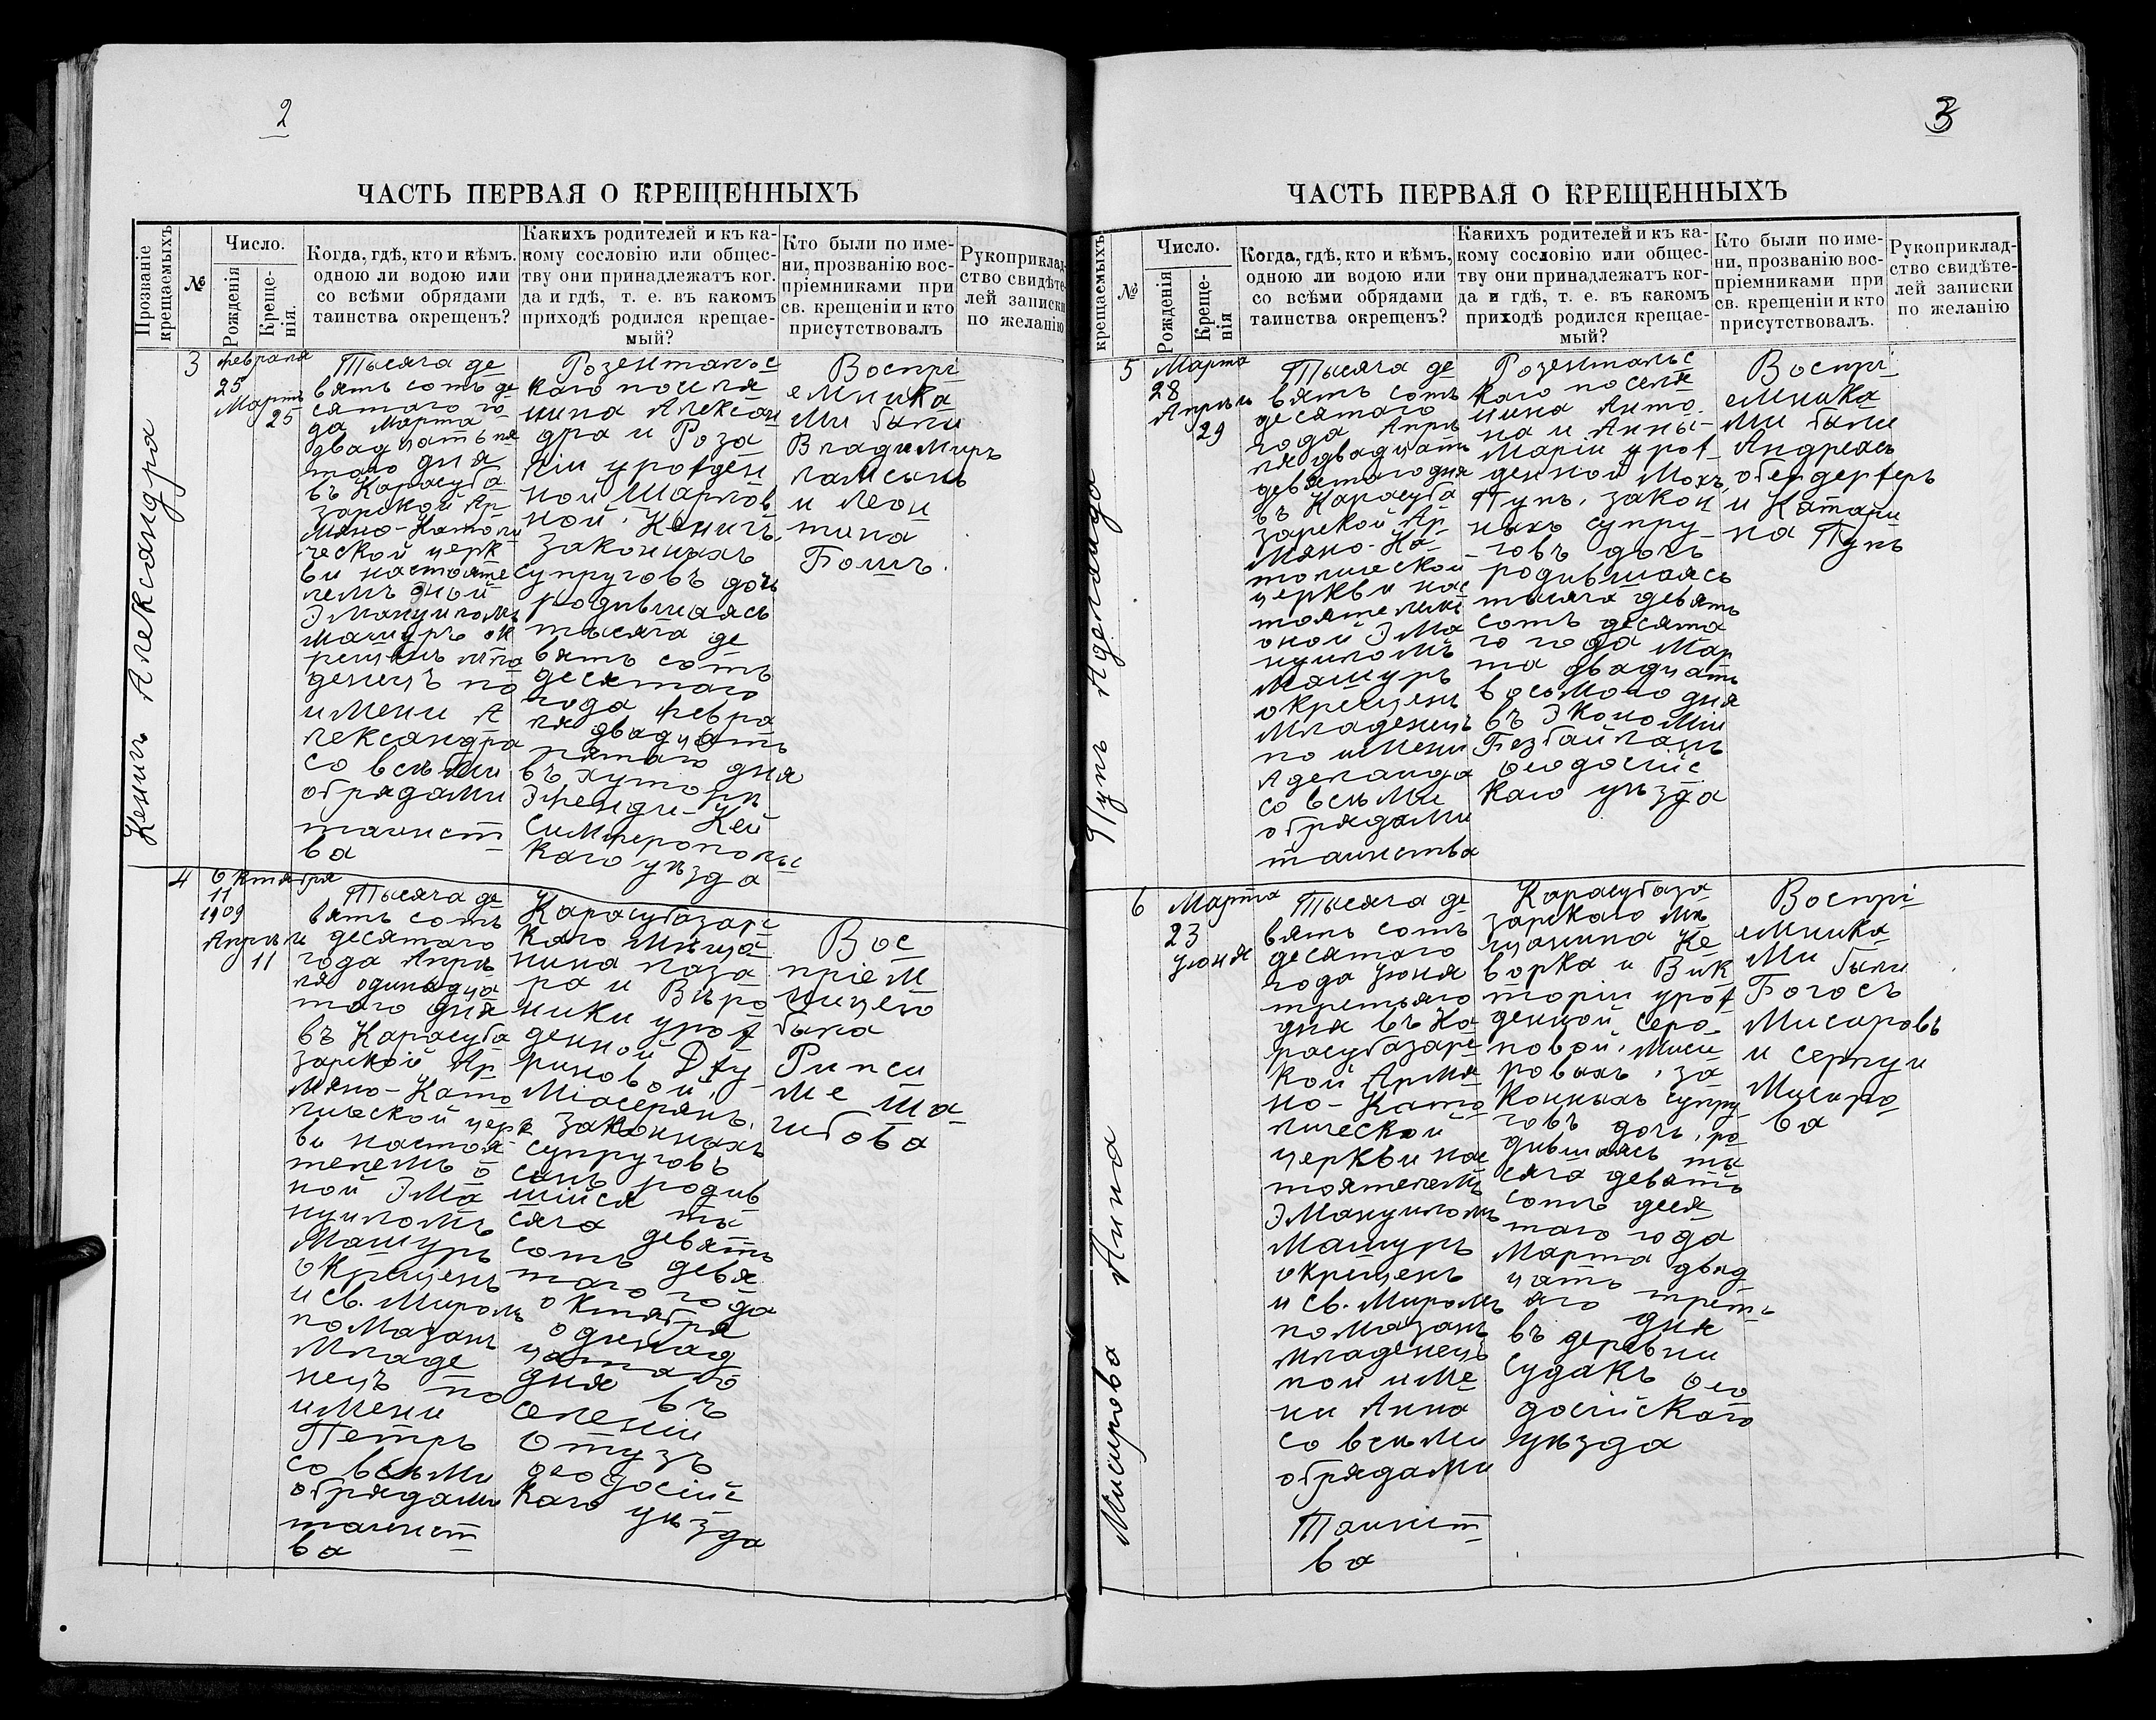 2
ЧАСТЬ ПЕРВАЯ О КРЕЩЕННЫХЪ
Прозваніе крещаемыхъ
№
Число.
Рожденія
Креще-
нія.
Когда, гдѣ, кто и кѣмъ.
одною ли водою или
со всѣми обрядами
таинства окрещенъ?
Какихъ родителей и къ ка-
кому сословію или общес-
тву они принадлежатъ ког.
да и гдѣ, т. е. въ какомъ
приходѣ родился крещае-
мый?
Кто были по име-
ни, прозванію вос-
пріемниками при
св. крещеніи и кто
присутствовалъ
Рукоприклад-
ство свидѣте-
лей записки
по желанію
Кениг Александра
3
Февраля
25
Мартъ
25
Тысяча де
вять сотъ де
сятаго го
да Марта
двадцать пя
таго дня
въ Карасуба
зарской Ар
мяно-Католи
ческой церк
ви настояте
лемъ оной
Эмануиломъ
Мамуръ ок
рещенъ мла
денецъ по
имени А
лександра
со всѣми
обрядами
таинст
ва
Розентальс
каго поселя
нина Алексан
дра и Роза
ліи урожден
ной Шарлов
ной. Кенигъ.
законныхъ
супруговъ дочь
родившаяся
тысяча де
вять сотъ
десятаго
года Февра
ля двадцать
пятаго дня
въ хуторѣ
Эфенди-Кей
Симферопольс
каго уѣзда
Воспрі
емника
ми были
Владимиръ
и Леон
тина
4
Октября
11
1909
Апрѣль
11
Тысяча де
вять сотъ
десятаго
года Апрѣ
ля одинадца
таго дня
въ Карасуба
зарской Ар
мяно-Като
лической церк
ви настоя
телемъ о
ной Эма
нуиломъ
Мамуръ
окрещенъ
и св. Миромъ
помазанъ
младе
нецъ по
имени
Петръ
со всѣми
обрядами
таинст
ва
Карасубазарс
каго мѣща
нина Лаза
ра и Веро
ники урож
денной Джу
риновой
законныхъ
супруговъ
сынъ родив
шійся ты
сяча девять
сотъ девя
таго года
октября
одинад
цатаго
дня въ
селеніи
Отузъ
Ѳеодосійс
каго уѣзда
Вос
пріем
ницею
была
Рипси
ме Ша
гибова
3
ЧАСТЬ ПЕРВАЯ О КРЕЩЕННЫХЪ
крещаемыхъ
№
Число.
Рожденія
Креще-
нія
Когда, гдѣ, кто и кѣмъ,
одною ли водою или
со всѣми обрядами
таинства окрещенъ?
Какихъ родителей и къ ка-
кому сословію или общес-
тву они принадлежатъ ког-
да и гдѣ, т. е. въ какомъ
приходѣ родился крещае-
мый?
Кто были по име-
ни, прозванію вос-
пріемниками при
св. крещеніи и кто
присутствовалъ.
Рукоприклад-
ство свидѣте-
лей записки
по желанію
Пупъ Аделаида
5
Марта
28
Апрѣль
29
Тысяча де
вять сотъ
десятаго
года Апрѣ
ля двадцать
девятаго дня
въ Карасуба
зарской Ар
мяно-Ка
толической
церкви нас
тоятелемъ
оной Эма
нуиломъ
Мамуръ
окрещенъ
младенецъ
по имени
Аделаида
со всѣми
обрядами
таинства
Розентальс
каго поселя
нина Анто
на и Анны-
Маріи урож
денной Мохъ,
Пупъ, закон
ныхъ супру
говъ дочь
родившаяся
тысяча девять
сотъ десята
го года Мар
та двадцать
восьмого дня
въ Экономіи
Ѳеодосійс
каго уѣзда
Воспрі
емника
ми были
Андреасъ
обендерферъ
и Катари
на Пупъ
Мисирова Анна
6
Марта
23
Іюня
Тысяча де
вять сотъ
десятаго
года Іюня
третьяго
дня въ Ка
расубазарс
кой Армя
но-Като
лической
церкви нас
тоятелемъ
Эмануиломъ
Мамуръ
окрещенъ
и св. Миромъ
помазанъ
младенецъ
пои име
ни Анна
со всѣми
обрядами
Таинст
ва
Карасубаза
зарскаго мѣ
щанина Ке
ворка и Вик
торіи урож
денной Серо
повой, Миси
ровыхъ, за
конныхъ супру
говъ дочь, ро
дившаяся ты
сяча девять
сотъ деся
таго года
Марта двад
цать треть
яго дня
въ деревни
Судакъ Ѳео
досійскаго
уѣзда
Воспрі
емника
ми были
Богосъ
Мисировъ
и Серпуи
Мисиро
ва